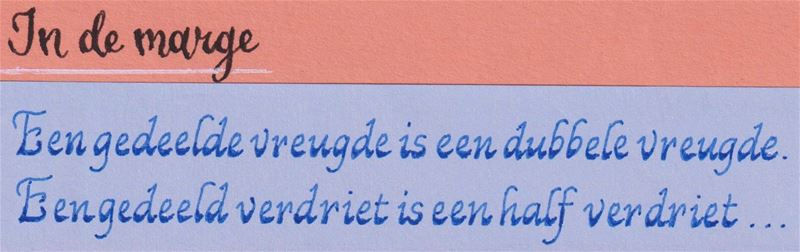 In de marge
Een gedeelde vreugde is een dubbele vreugde.
Een gedeeld verdriet is een half verdriet ...